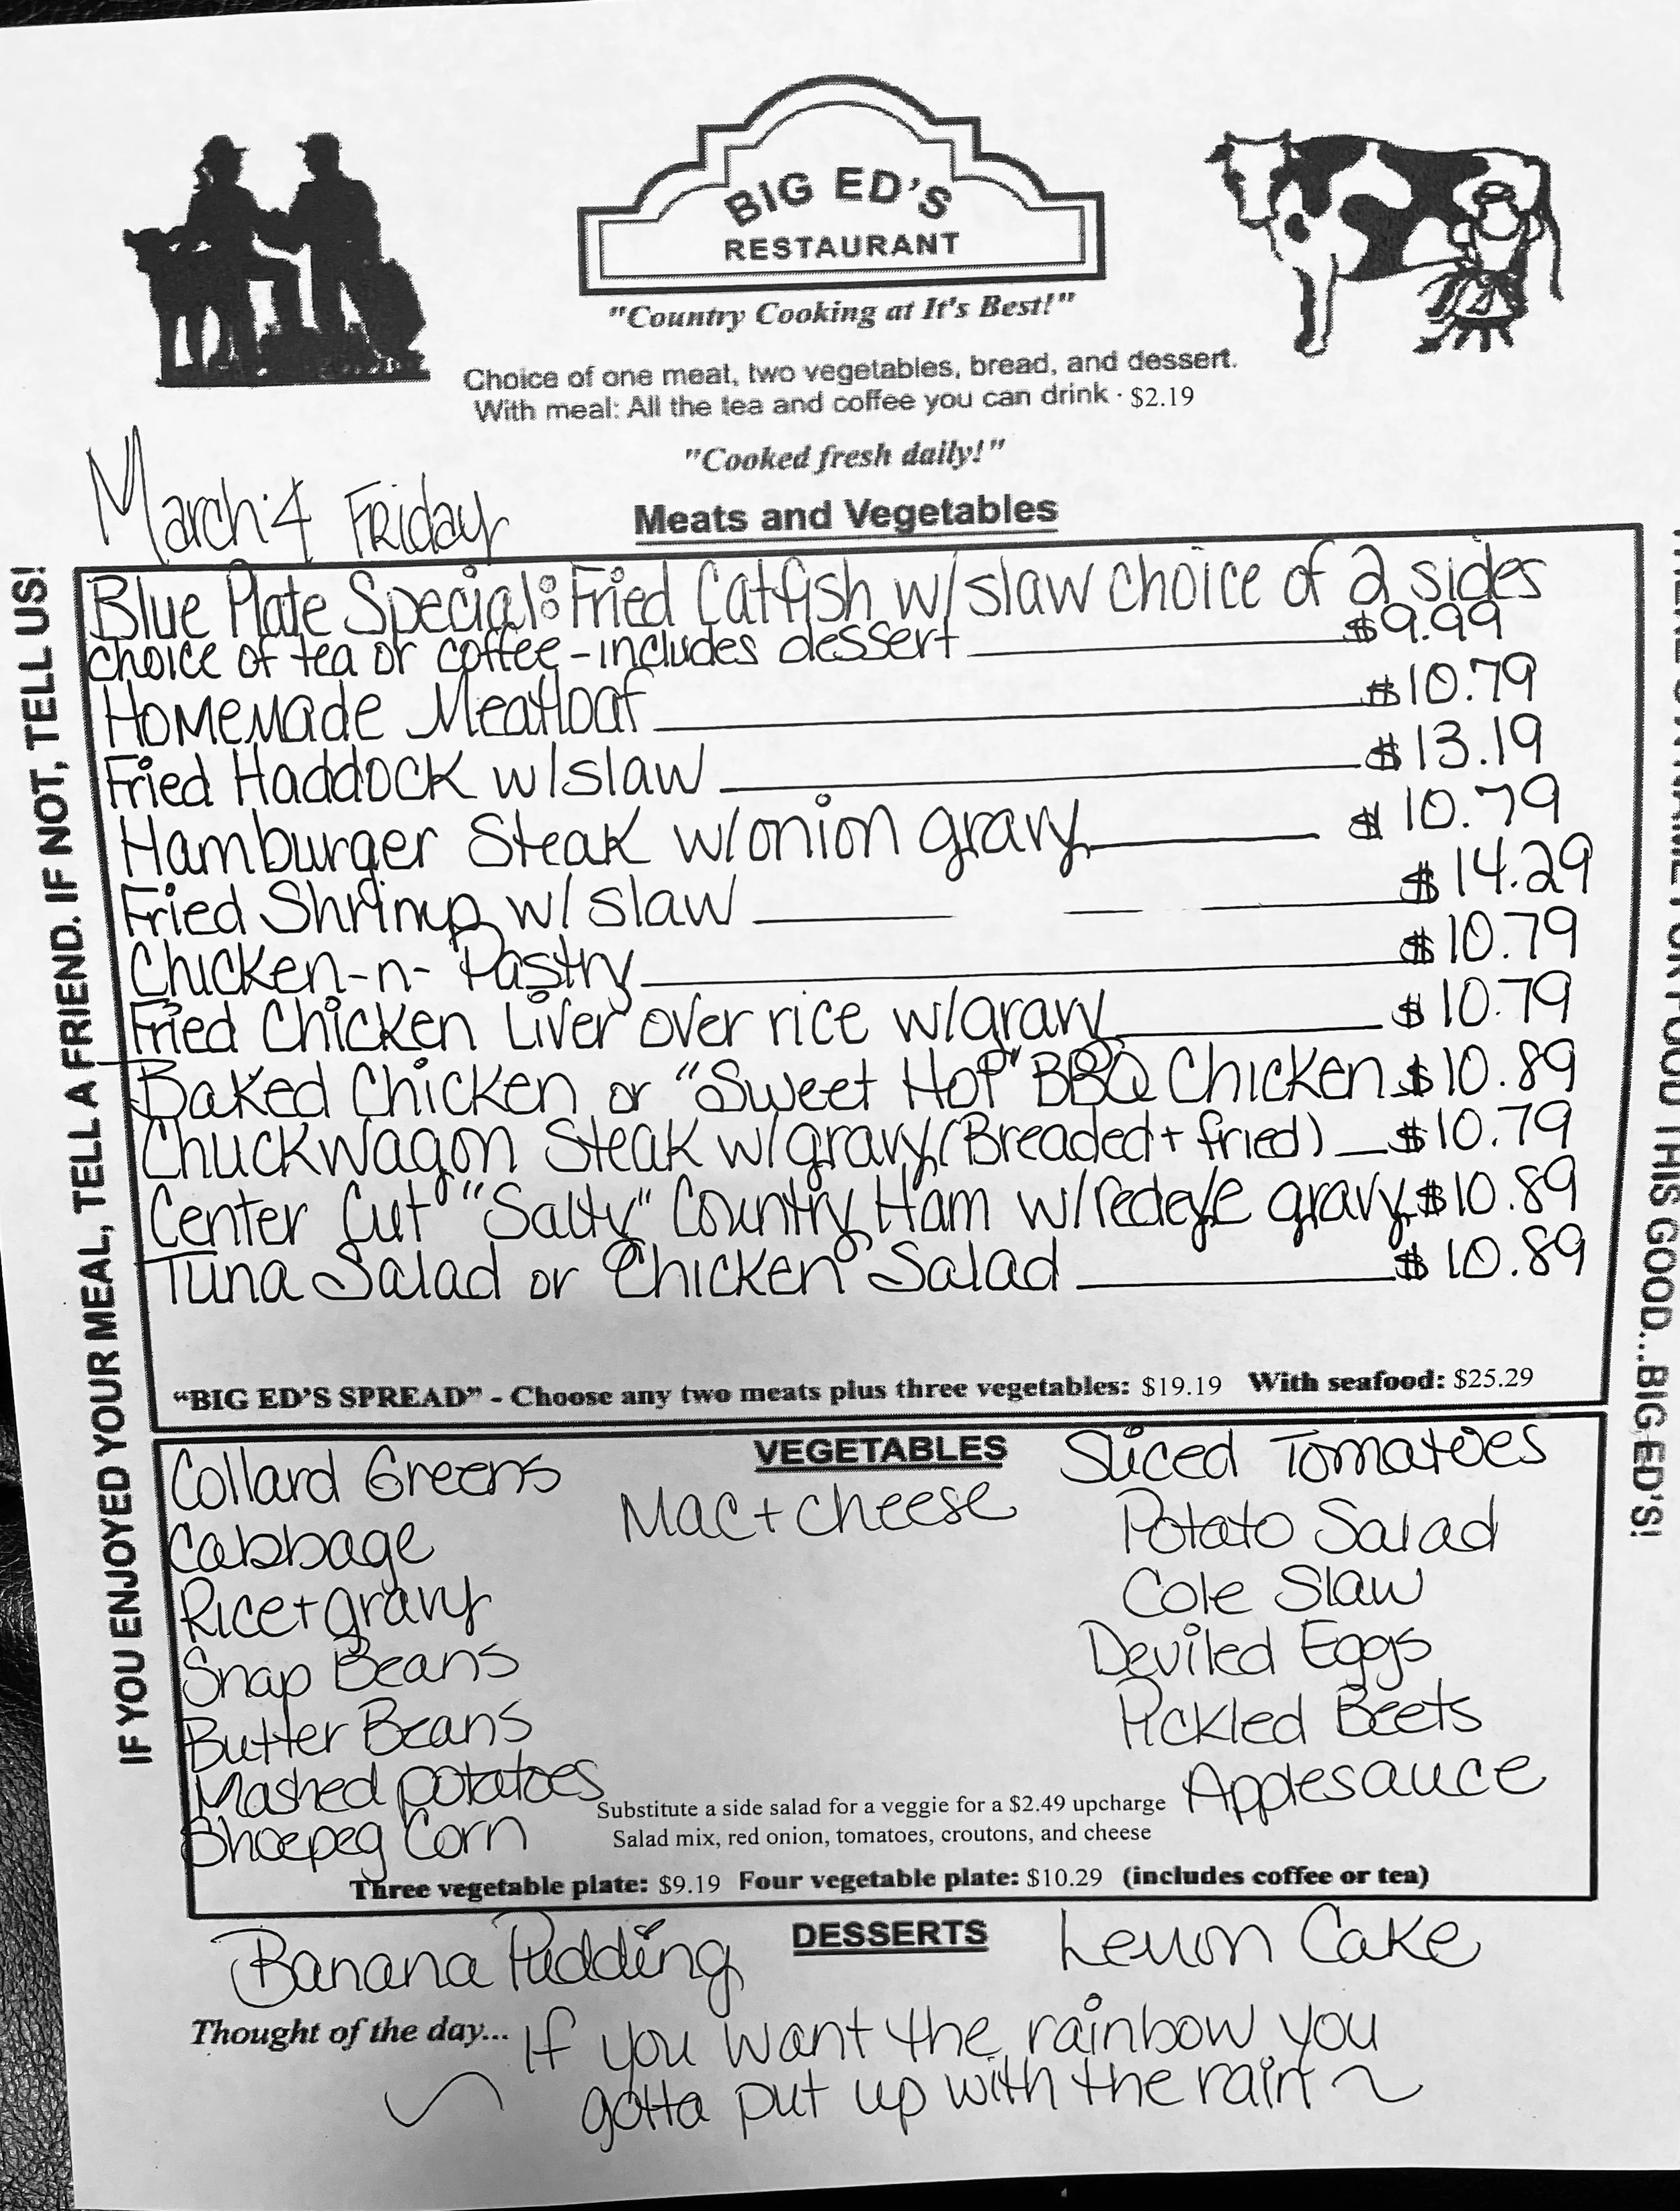 BIG ED'S
RESTAURANT
"Country Cooking at It's Best!"
Choice of one meat, two vegetables, bread, and dessert.
With meal: All the tea and coffee you can drink · $2.19
"Cooked fresh daily!"
March 4 Friday
Meats and Vegetables
Blue Plate Special: Fried Catfish w/slaw choice of 2 sides
choice of tea or coffee - includes dessert $9.99
Homemade Meatloaf $10.79
Fried Haddock w/slaw $13.19
Hamburger Steak w/onion gravy $10.79
Fried Shrimp w/slaw $14.29
Chicken-n-Pastry $10.79
Fried Chicken Liver over rice w/gravy $10.79
Baked Chicken or "Sweet Hot" BBQ Chicken $10.89
Chuckwagon Steak w/gravy (Breaded + fried) $10.79
Center Cut "Salty" Country Ham w/redeye gravy $10.89
Tuna Salad or Chicken Salad $10.89
"BIG ED'S SPREAD" - Choose any two meats plus three vegetables: $19.19 With seafood: $25.29
VEGETABLES
Collard Greens
Cabbage
Rice + gravy
Snap Beans
Butter Beans
Mashed potatoes
Shoepeg Corn
Mac + cheese
Sliced Tomatoes
Potato Salad
Cole Slaw
Deviled Eggs
Pickled Beets
Applesauce
Substitute a side salad for a veggie for a $2.49 upcharge
Salad mix, red onion, tomatoes, croutons, and cheese
Three vegetable plate: $9.19 Four vegetable plate: $10.29 (includes coffee or tea)
DESSERTS
Banana Pudding
Lemon Cake
Thought of the day... If you want the rainbow you
gotta put up with the rain
IF YOU ENJOYED YOUR MEAL, TELL A FRIEND. IF NOT, TELL US!
THIS GOOD...BIG ED'S!